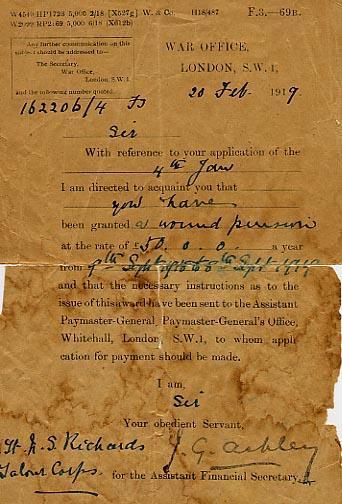 W4549 HP1723 5,000 2/18 [X527g] W. & Co. H18/487 F.3.—69B.
W2099 RP2169 5,000 6/18 [X612b]
Any further communication on this
subject should be addressed to—
The Secretary,
War Office,
London, S.W.1,
and the following number quoted.
162206/4
WAR OFFICE,
LONDON, S.W.1,
20 Feb. 1919
Sir
With reference to your application of the
4th Jan
I am directed to acquaint you that
you have
been granted a wound pension
at the rate of £50. 0. 0. a year
from 9th Sept 1918 to 8th Sept 1919
and that the necessary instructions as to the
issue of this award have been sent to the Assistant
Paymaster-General, Paymaster-General's Office,
Whitehall, London, S.W.1, to whom appli
cation for payment should be made.
I am,
Sir
Your obedient Servant,
Lt. N. S. Richards J. G. Ashley
Labour Corps. for the Assistant Financial Secretary.